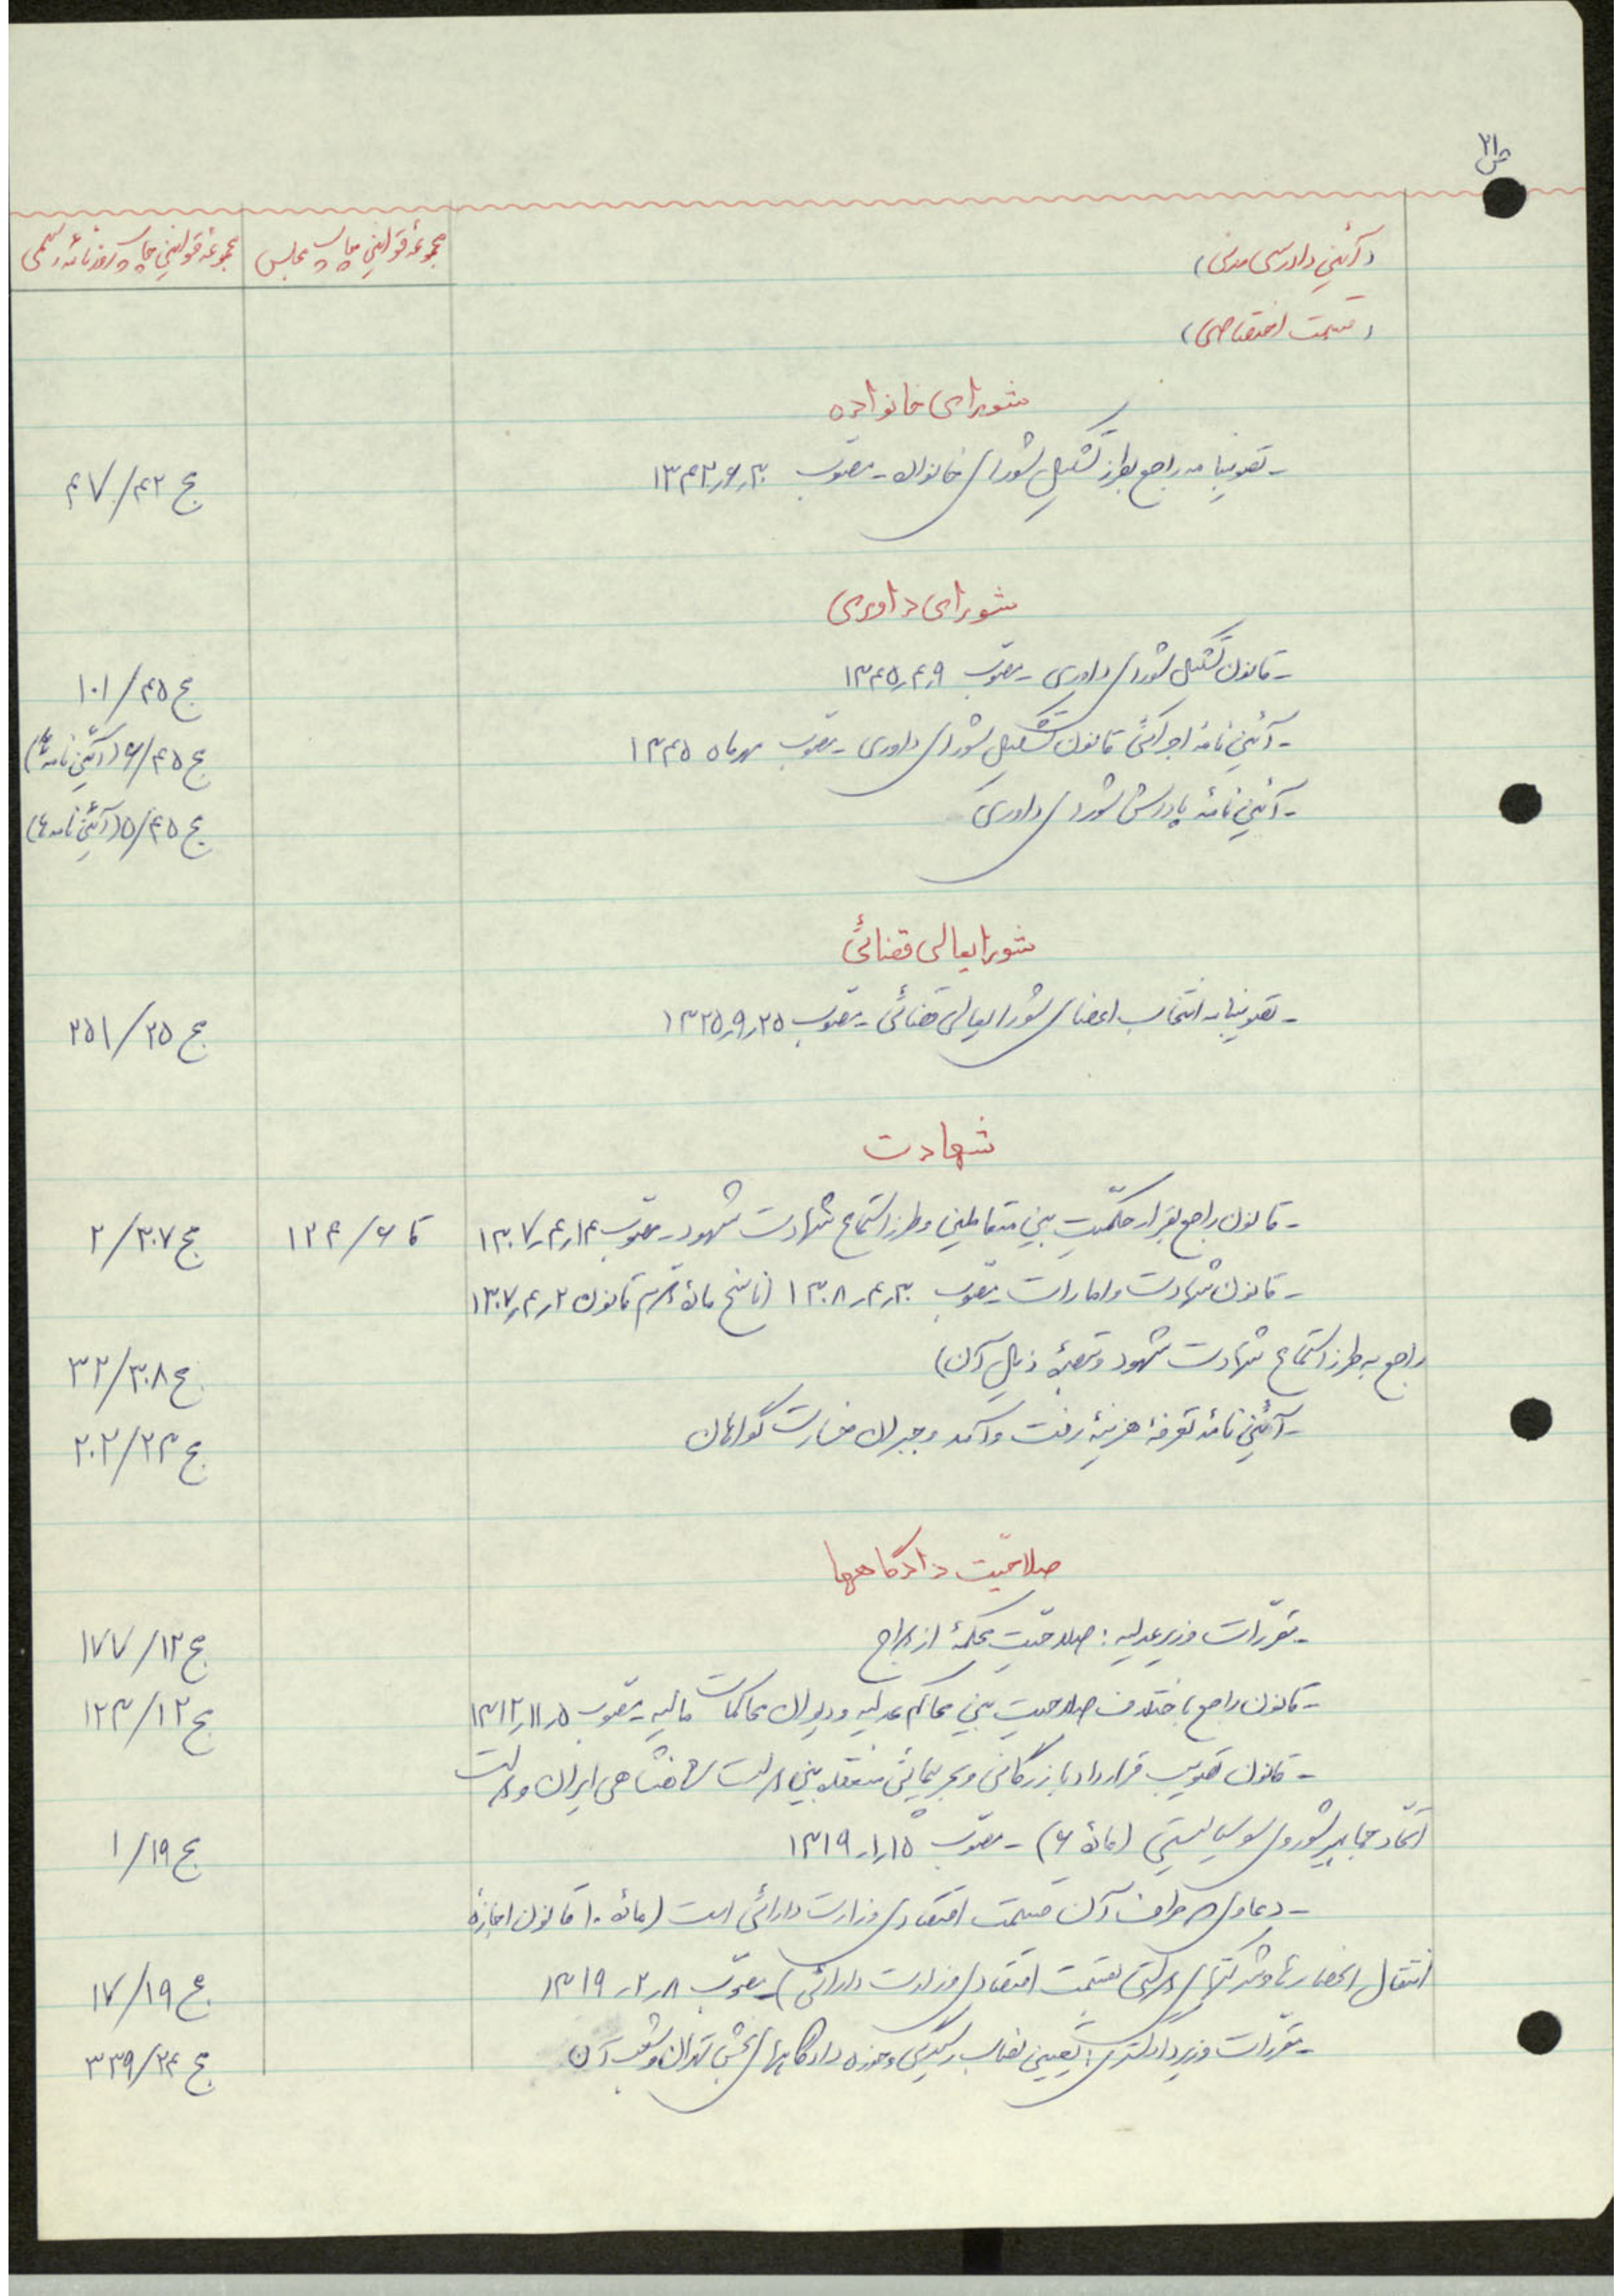 ص ۲۱
(آئین دادرسی مدنی)
مجموعهٔ قوانین چاپ مجلس
مجموعهٔ قوانین چاپ روزنامهٔ رسمی
(قسمت اختصاصی)
شورای خانواده
- تصویبنامه راجع بطرز تشکیل شورای خانواده - مصوّب ۱۳۴۲٫۶٫۳۰
ج ۴۲/۴۷
شورای داوری
- قانون تشکیل شورای داوری - مصوّب ۱۳۴۵٫۴٫۹
ج ۴۵/۱۰۱
- آئین نامهٔ اجرائی قانون تشکیل شورای داوری - مصوّب مهرماه ۱۳۴۵
ج ۴۵/۶ (آئین نامه ها)
- آئین نامهٔ پاداش شورای داوری
ج ۴۵/۵ (آئین نامه ها)
شورایعالی قضائی
- تصویبنامه انتخاب اعضای شورایعالی قضائی - مصوّب ۱۳۲۵٫۹٫۲۵
ج ۲۵/۲۵۱
شهادت
- قانون راجع بقرار حکمّیت بین متعاملین و طرز استماع شهادت شهود - مصوّب ۱۳۰۷٫۴٫۱۴
تا ۶/۱۲۴
ج ۳۰۷/۲
- قانون شهادت و امارات مصوّب ۱۳۰۸٫۴٫۳۰ (ناسخ مادهٔ قانون ۱۳۰۷٫۴٫۲
راجع به طرز استماع شهادت شهود و تبصرهٔ ذیل آن)
ج ۳۰۸/۳۲
- آئین نامهٔ تعرفهٔ هزینهٔ رفت و آمد و جبران خسارت گواهان
ج ۲۳/۲۰۲
صلاحیّت دادگاهها
- مقرّرات وزیر عدلیه : صلاحیّت محکمهٔ از
ج ۱۲/۱۷۷
- قانون راجع باختلاف صلاحیت بین محاکم عدلیه و دیوان محاکمات مالیه - مصوّب ۱۳۱۲٫۱۱٫۵
ج ۱۲/۱۲۳
- قانون تصویب قرارداد بازرگانی و بحرپیمائی منعقده بین دولت شاهنشاهی ایران و دولت
اتّحاد جماهیر شوروی سوسیالیستی (مادهٔ ۶) - مصوّب ۱۳۱۹٫۱٫۱۵
ج ۱۹/۱
- دعاوی که طرف آن قسمت اقتصادی وزارت دارائی است (مادهٔ ۱۰ قانون اجازهٔ
انتقال انحصارها و شرکتهای دولتی بقسمت اقتصادی وزارت دارائی) - مصوّب ۱۳۱۹٫۲٫۸
ج ۱۹/۱۷
- مقرّرات وزیر دادگستری : تعیین نصاب رسیدگی و حوزه دادگاههای بخش تهران و شعب آن
ج ۲۴/۳۳۹